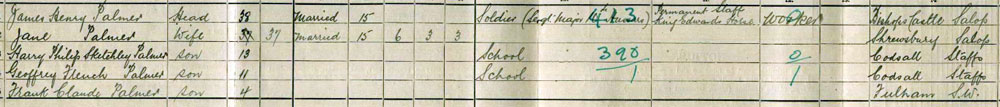 James Henry Palmer Head 38 Married 15 Soldier (Sergt Major Permanent Staff King Edwards Horse) Worker Bishops Castle Salop
Jane Palmer Wife 37 37 Married 15 6 3 3 Shrewsbury Salop
Harry Philip Sketchley Palmer son 13 School 390 0 Codsall Staffs
Geoffrey French Palmer son 11 School 1 1 Codsall Staffs
Frank Claude Palmer son 4 Fulham S.W.